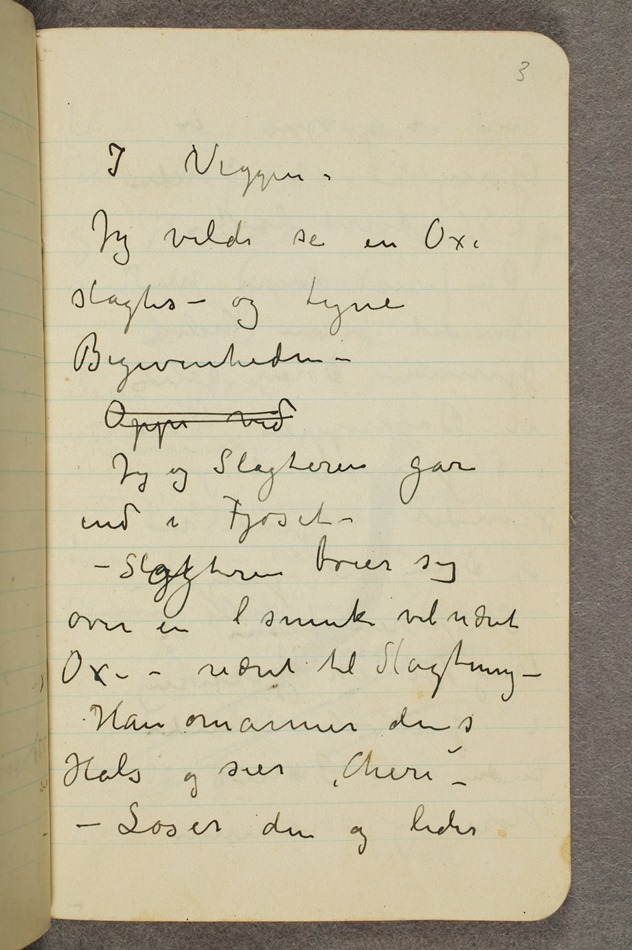 3
I Viggen.
Jeg vilde se en Oxe
slagtes – og tegne
Begivenheden –
Oppe ved
Jeg og Slagteren gar
ind i Fjøset –
– Slagteren bøier sig
over en smuk velnæret
Oxe – næret til Slagtning –
Han omarmer dens
Hals og sier „Cheri" –
– Løser den og leder